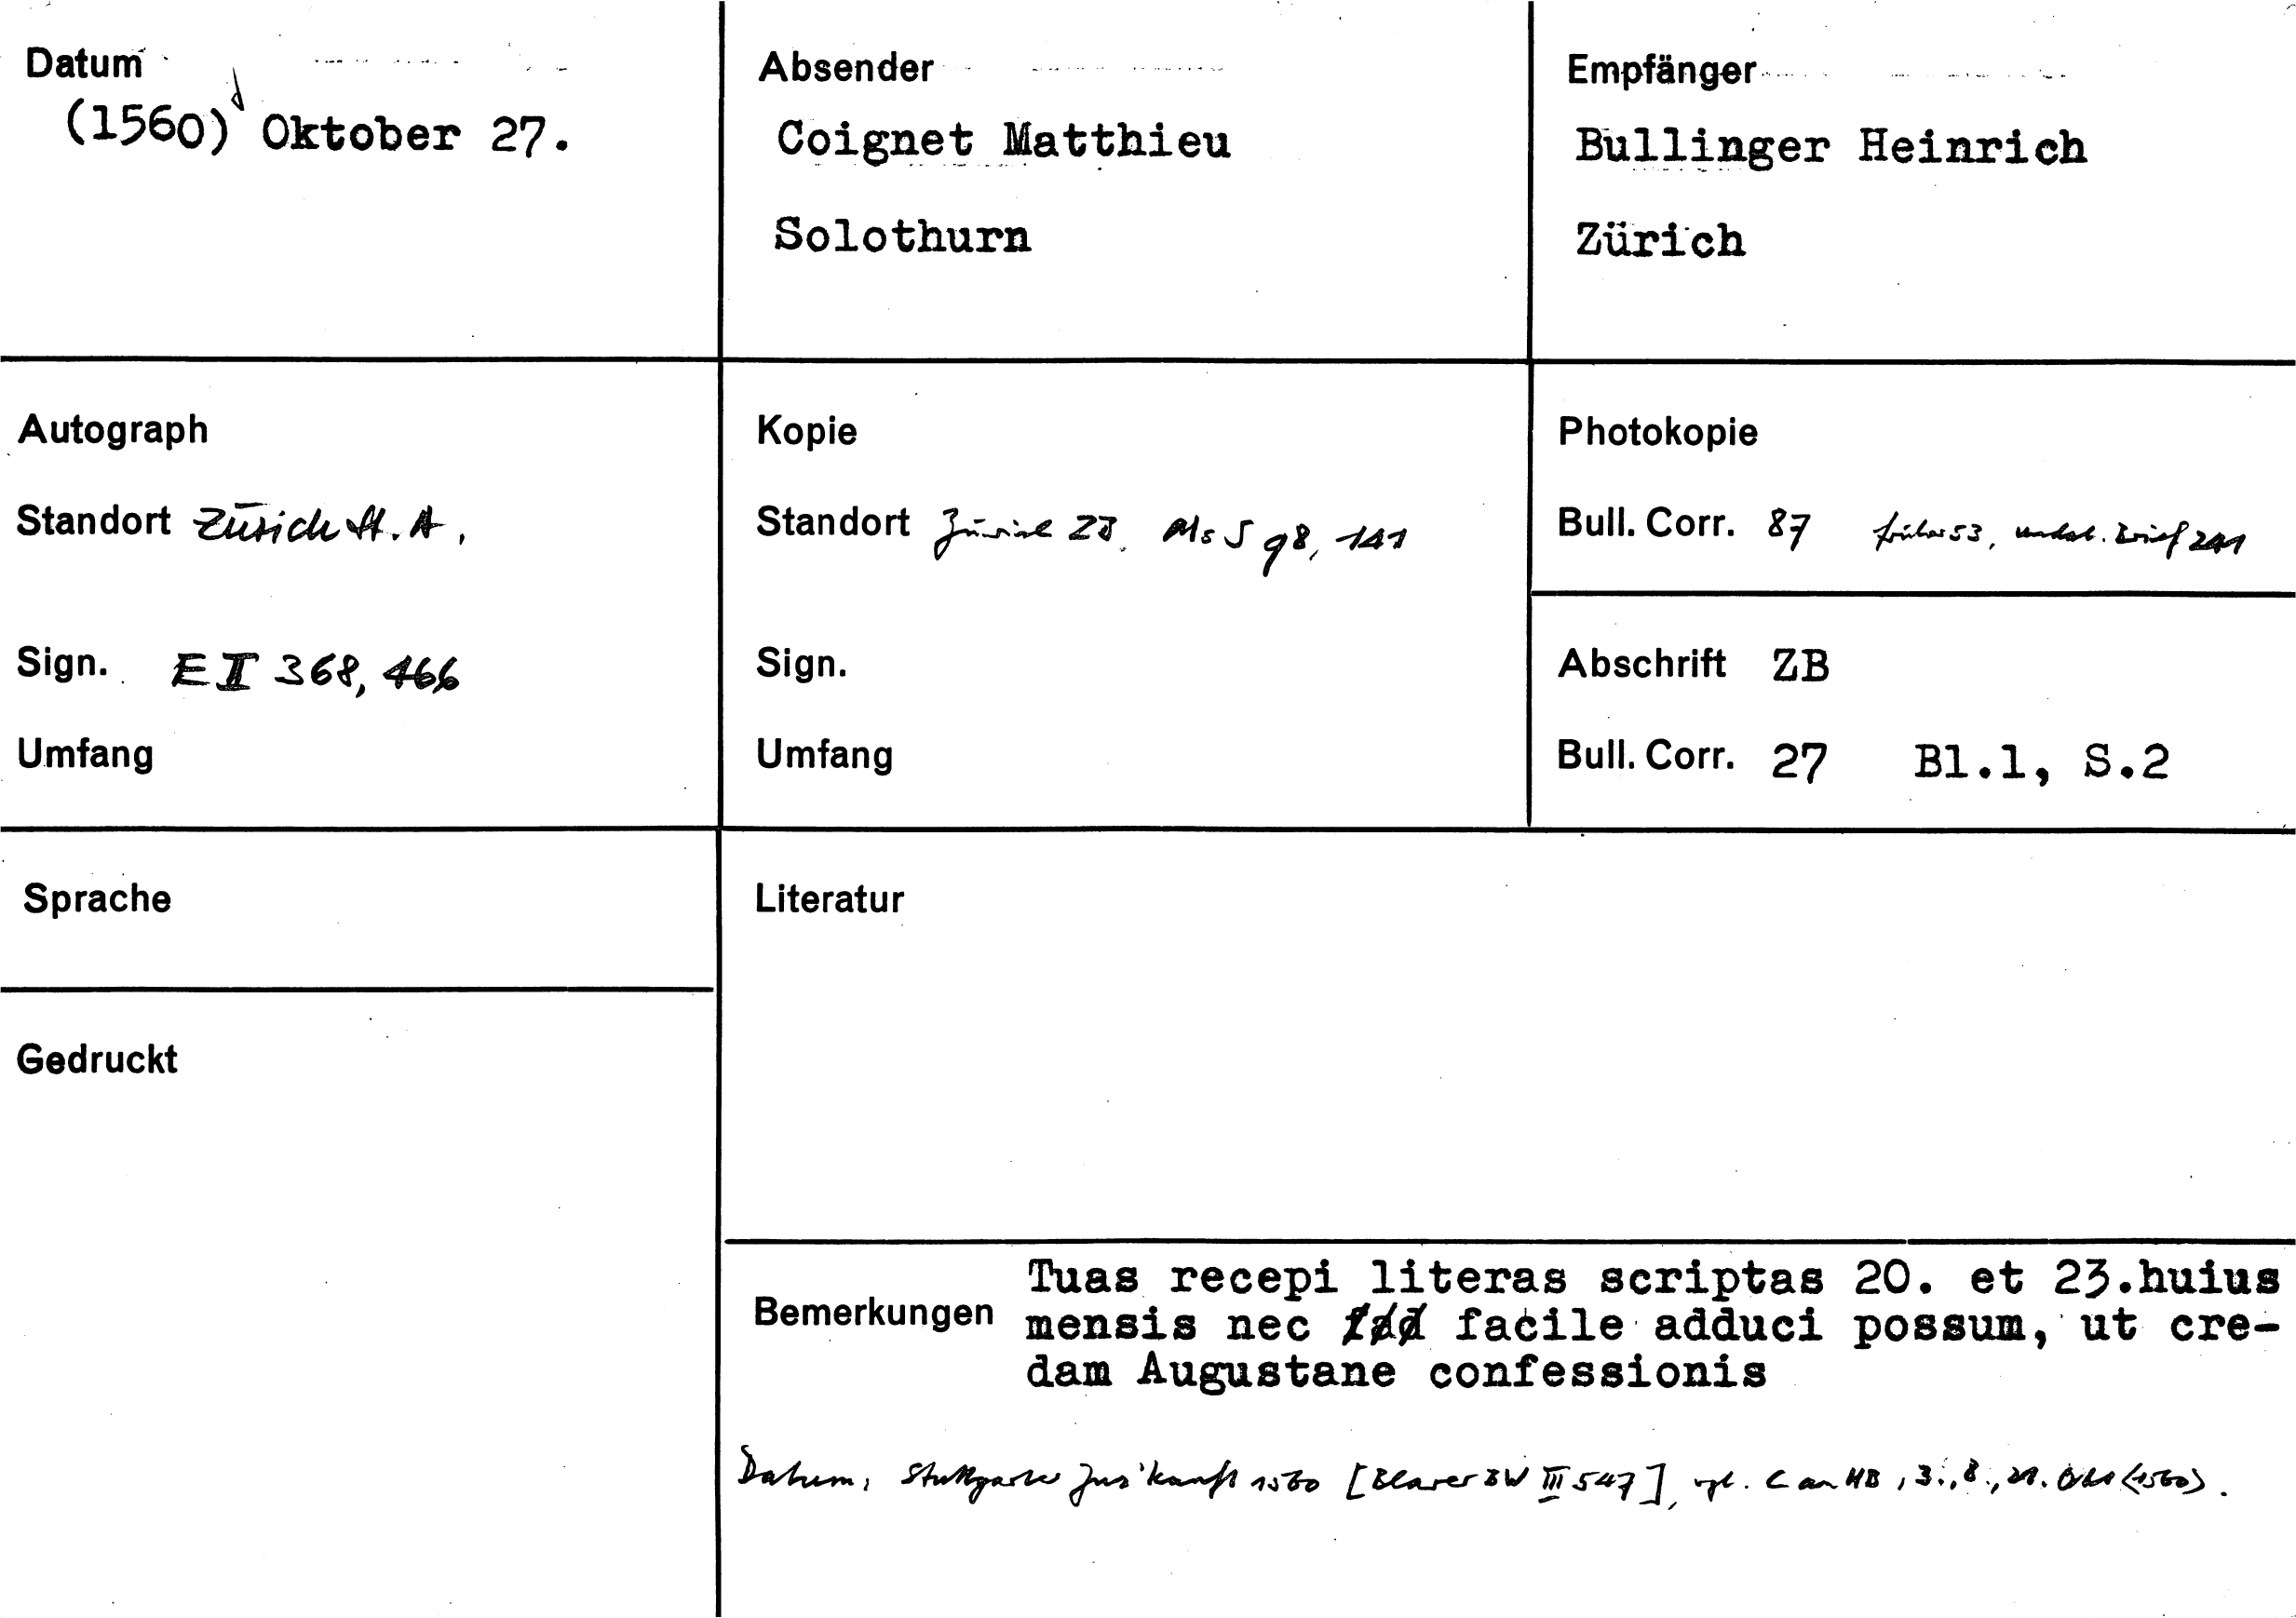 Datum
(1560) Oktober 27.
Absender
Coignet Matthieu
Solothurn
Empfänger
Bullinger Heinrich
Zürich
Autograph
Standort Zürich St. A.
Sign. E II 368, 466
Umfang
Kopie
Standort Zürich ZB. Ms S 98, 141
Sign.
Umfang
Photokopie
Bull. Corr. 87 früher 53, undat. Brief 241
Abschrift ZB
Bull. Corr. 27 Bl.1, S.2
Sprache
Gedruckt
Literatur
Bemerkungen
Tuas recepi literas scriptas 20. et 23.huius
mensis nec facile adduci possum, ut cre-
dam Augustane confessionis
Datum: Stuttgarter 1560 [Blarer BW III 547], vgl. C an HB, 3., 8., 21. Okt (1560).